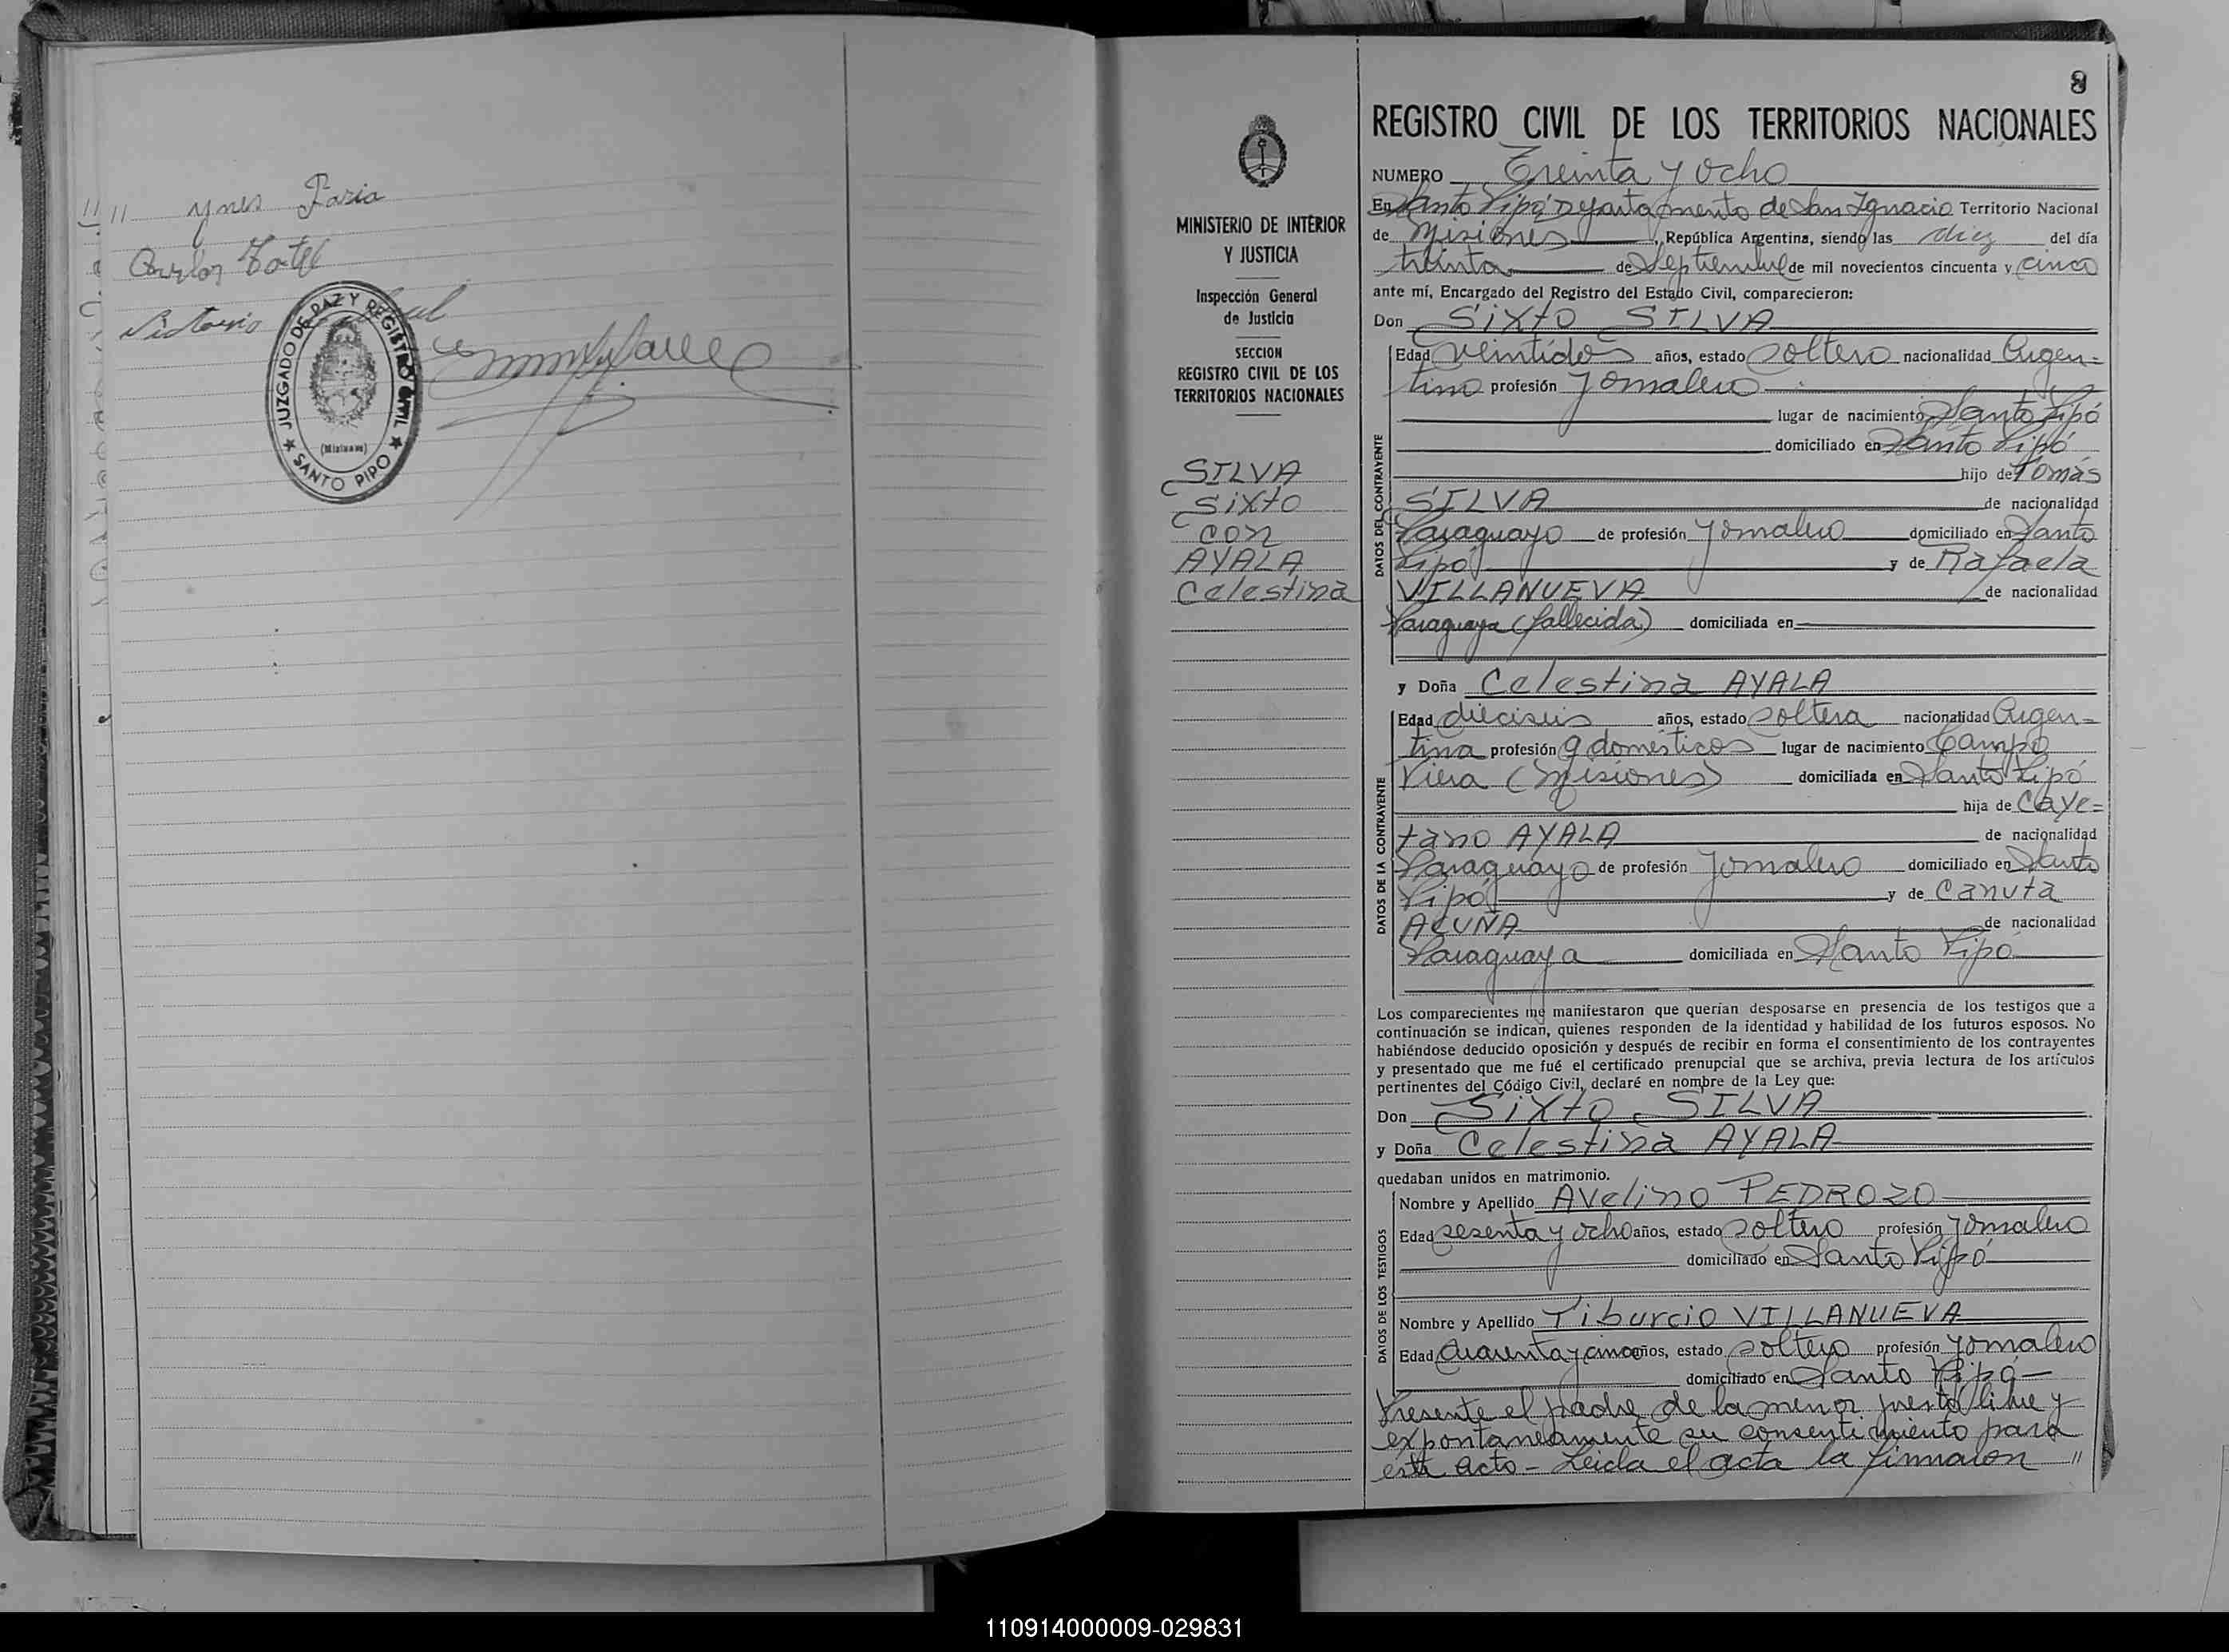 " " Ynes Faria
Carlos
Victorio
JUZGADO DE PAZ Y REGISTRO CIVIL
(Misiones)
SANTO PIPO
8
MINISTERIO DE INTERIOR
Y JUSTICIA
Inspección General
de Justicia
SECCION
REGISTRO CIVIL DE LOS
TERRITORIOS NACIONALES
SILVA
Sixto
con
AYALA
Celestina
REGISTRO CIVIL DE LOS TERRITORIOS NACIONALES
NUMERO Treinta y ocho
En Santo Pipó Departamento de San Ignacio Territorio Nacional
de Misiones, República Argentina, siendo las diez del día
treinta de Septiembre de mil novecientos cincuenta y cinco
ante mí, Encargado del Registro del Estado Civil, comparecieron:
Don Sixto SILVA
DATOS DEL CONTRAYENTE
Edad veintidos años, estado soltero nacionalidad Argen=
tino profesión Jornalero
lugar de nacimiento Santo Pipó
domiciliado en Santo Pipó
hijo de Tomás
SILVA de nacionalidad
Paraguayo de profesión Jornalero domiciliado en Santo
Pipó y de Rafaela
VILLANUEVA de nacionalidad
Paraguaya (fallecida) domiciliada en
y Doña Celestina AYALA
DATOS DE LA CONTRAYENTE
Edad dieciseis años, estado soltera nacionalidad Argen=
tina profesión q domésticos lugar de nacimiento Campo
Viera (Misiones) domiciliada en Santo Pipó
hija de Caye=
tano AYALA de nacionalidad
Paraguayo de profesión Jornalero domiciliado en Santo
Pipó y de Canuta
ACUÑA de nacionalidad
Paraguaya domiciliada en Santo Pipó
Los comparecientes me manifestaron que querían desposarse en presencia de los testigos que a
continuación se indican, quienes responden de la identidad y habilidad de los futuros esposos. No
habiéndose deducido oposición y después de recibir en forma el consentimiento de los contrayentes
y presentado que me fué el certificado prenupcial que se archiva, previa lectura de los artículos
pertinentes del Código Civil, declaré en nombre de la Ley que:
Don Sixto SILVA
y Doña Celestina AYALA
quedaban unidos en matrimonio.
DATOS DE LOS TESTIGOS
Nombre y Apellido Avelino PEDROZO
Edad sesenta y ocho años, estado soltero profesión Jornalero
domiciliado en Santo Pipó
Nombre y Apellido Tiburcio VILLANUEVA
Edad cuarenta y cinco años, estado soltero profesión Jornalero
domiciliado en Santo Pipó-
Presente el padre de la menor presta libre y
expontaneamente su consentimiento para
este acto - Leida el acta la firmaron "
110914000009-029831